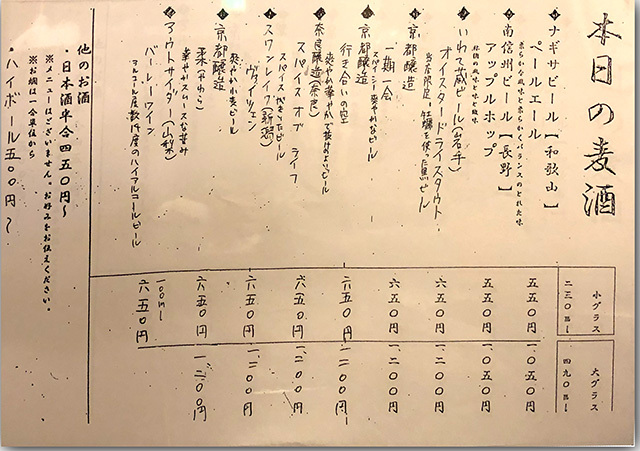 本日の麦酒
小グラス 二三〇ml
大グラス 四九〇ml
ナギサビール【和歌山】
ペールエール
柔らかな風味と柔らかくバランスのとれた味
五五〇円
一〇五〇円
南信州ビール【長野】
アップルホップ
林檎の風味と味と酸味
五五〇円
一〇五〇円
いわて蔵ビール(岩手)
オイスタードライスタウト・
当店限定。牡蠣を使った黒ビール
六五〇円
一二〇〇円
京都醸造
一期一会
スパイシー爽やかなビール
六五〇円
一二〇〇円
京都醸造
行き合いの空
爽やか華やかで抜けのよいビール
六五〇円
一二〇〇円
奈良醸造(奈良)
スパイスオブライフ
スパイスがきいたビール
六五〇円
一二〇〇円
スワンレイク(新潟)
ヴァイツェン
爽やか小麦ビール
六五〇円
一二〇〇円
京都醸造
柔(やわら)
華やかスムースな苦み
六五〇円
一二〇〇円
アウトサイダー(山梨)
バーレーワイン
アルコール度数
度のハイアルコールビール
一〇〇ml
六五〇円
他のお酒
・日本酒半合四五〇円〜
※メニューはございません。お好みをお伝えください。
※お燗は一合単位から
・ハイボール五〇〇円〜